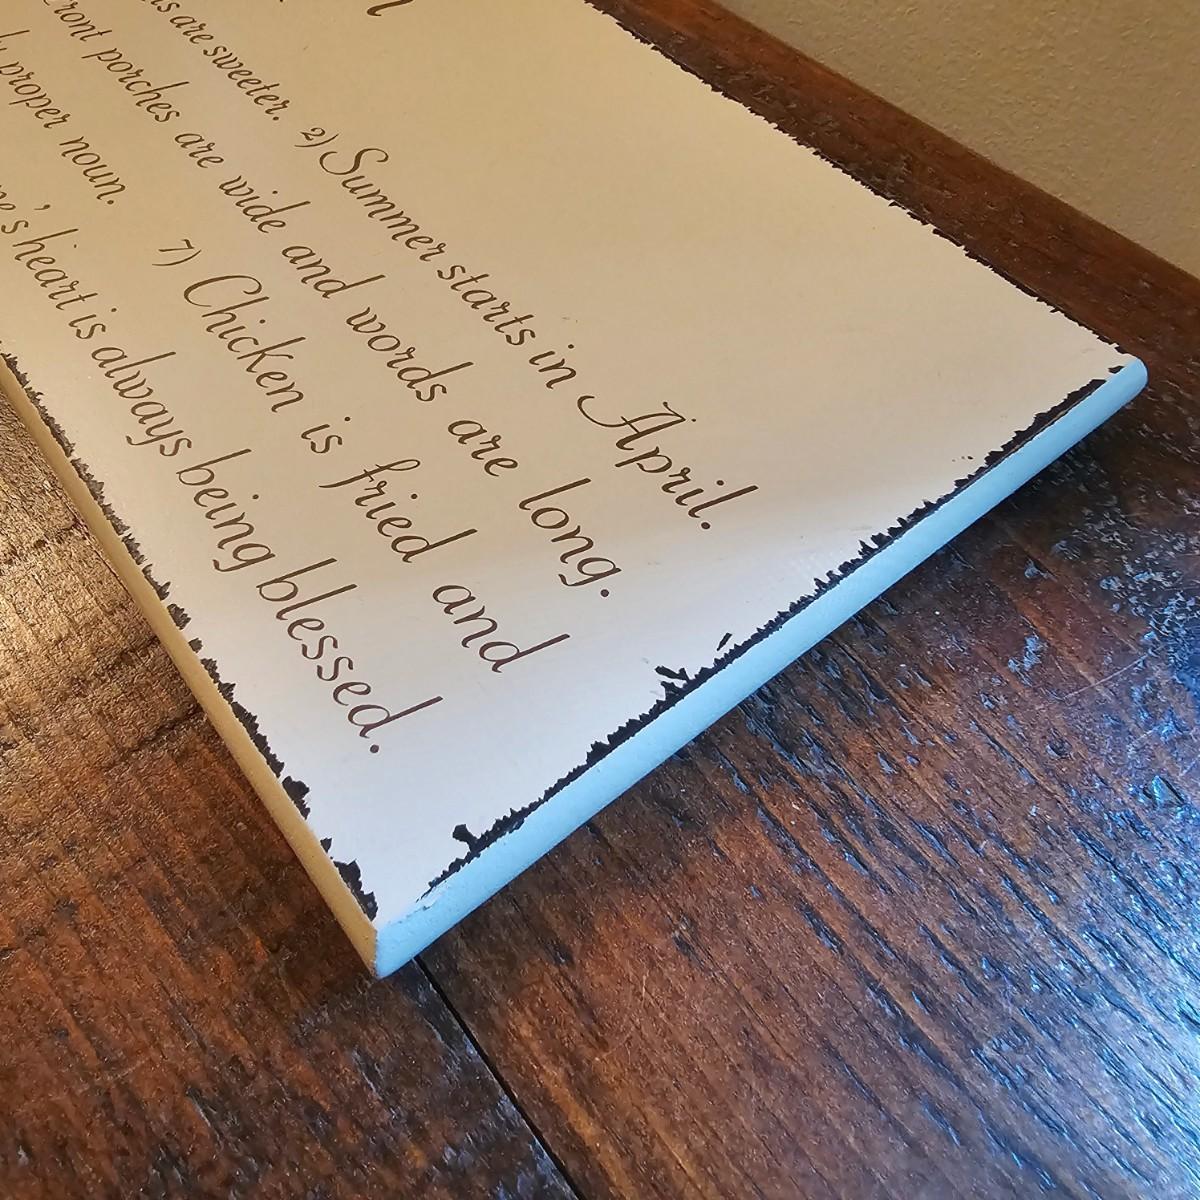 are sweeter. 2) Summer starts in April.
porches are wide and words are long.
proper noun. 7) Chicken is fried and
heart is always being blessed.